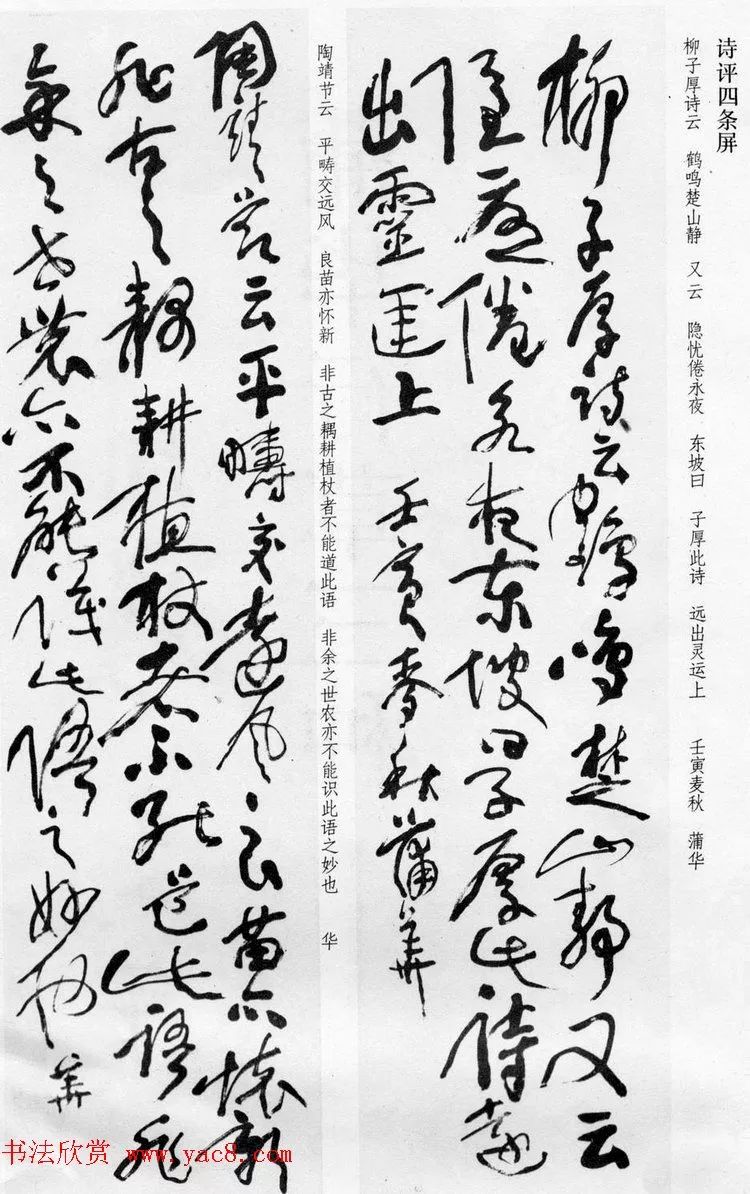 诗评四条屏
柳子厚诗云 鹤鸣楚山静 又云 隐忧倦永夜 东坡曰 子厚此诗 远出灵运上 壬寅麦秋 蒲华
柳子厚诗云鹤鸣楚山静又云
隐忧倦永夜东坡曰子厚此诗远
出靈運上 壬寅麥秋蒲華
陶靖节云 平畴交远风 良苗亦怀新 非古之耦耕植杖者不能道此语 非余之世农亦不能识此语之妙也 华
陶靖节云平疇交遠风良苗亦懷新
非古之耦耕植杖者不能道此语非
余之世農亦不能識此語之妙也 華
书法欣赏 www.yac8.com